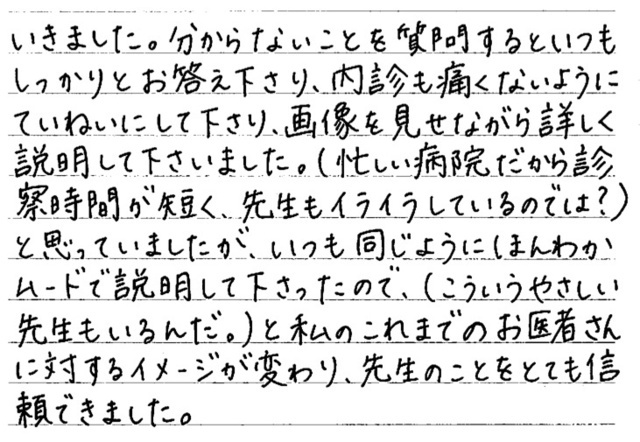 いきました。分からないことを質問するといつも
しっかりとお答え下さり、内診も痛くないように
ていねいにして下さり、画像を見せながら詳しく
説明して下さいました。(忙しい病院だから診
察時間が短く、先生もイライラしているのでは?)
と思っていましたが、いつも同じようにほんわか
ムードで説明して下さったので、(こういうやさしい
先生もいるんだ。)と私のこれまでのお医者さん
に対するイメージが変わり、先生のことをとても信
頼できました。